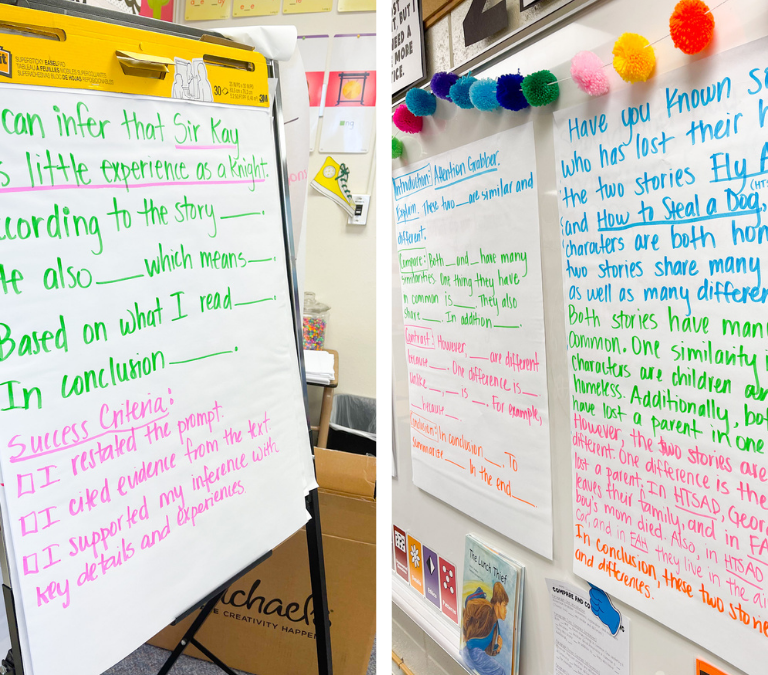 SUPERSTICKY BÁSELINO
TABLEAU À FEUILLES MOBILES SUPERCOLLANTS
30
3M
can infer that Sir Kay
s little experience as a knight.
ccording to the story ____.
He also ____ which means ____.
Based on what I read ____.
In conclusion ____.
Success Criteria:
I restated the prompt.
I cited evidence from the text.
I supported my inference with
key details and experiences.
ichaels
E CREATIVITY HAPPEN
BUT I
NEED A
MORE
ICE.
2
Introduction: Attention Grabber.
Explain. These two ___ are similar and
different.
Compare: Both ___ and ___ have many
similarities. One thing they have
in common is ____. They also
share ____. In addition ____.
Contrast: However ___ are different
because ___. One difference is ___.
Unlike ___, ___ is ___. For example,
___ because ___.
Conclusion: In conclusion ____. To
summarize ____. In the end ____.
Have you known so
who has lost their h
the two stories Fly A
and How to Steal a Dog,
characters are both hom
two stories share many
as well as many differen
Both stories have many
common. One similarity i
characters are children
homeless. Additionally, bot
have lost a parent in one
However, the two stories are
different. One difference is the
lost a parent. In HTSAD, Georg
leaves their family, and in FA
boy's mom died. Also, in HTSAD
car, and in FAH they live in the air
In conclusion, these two storie
and differences.
The Lunch Thief
COMPARE AND CO